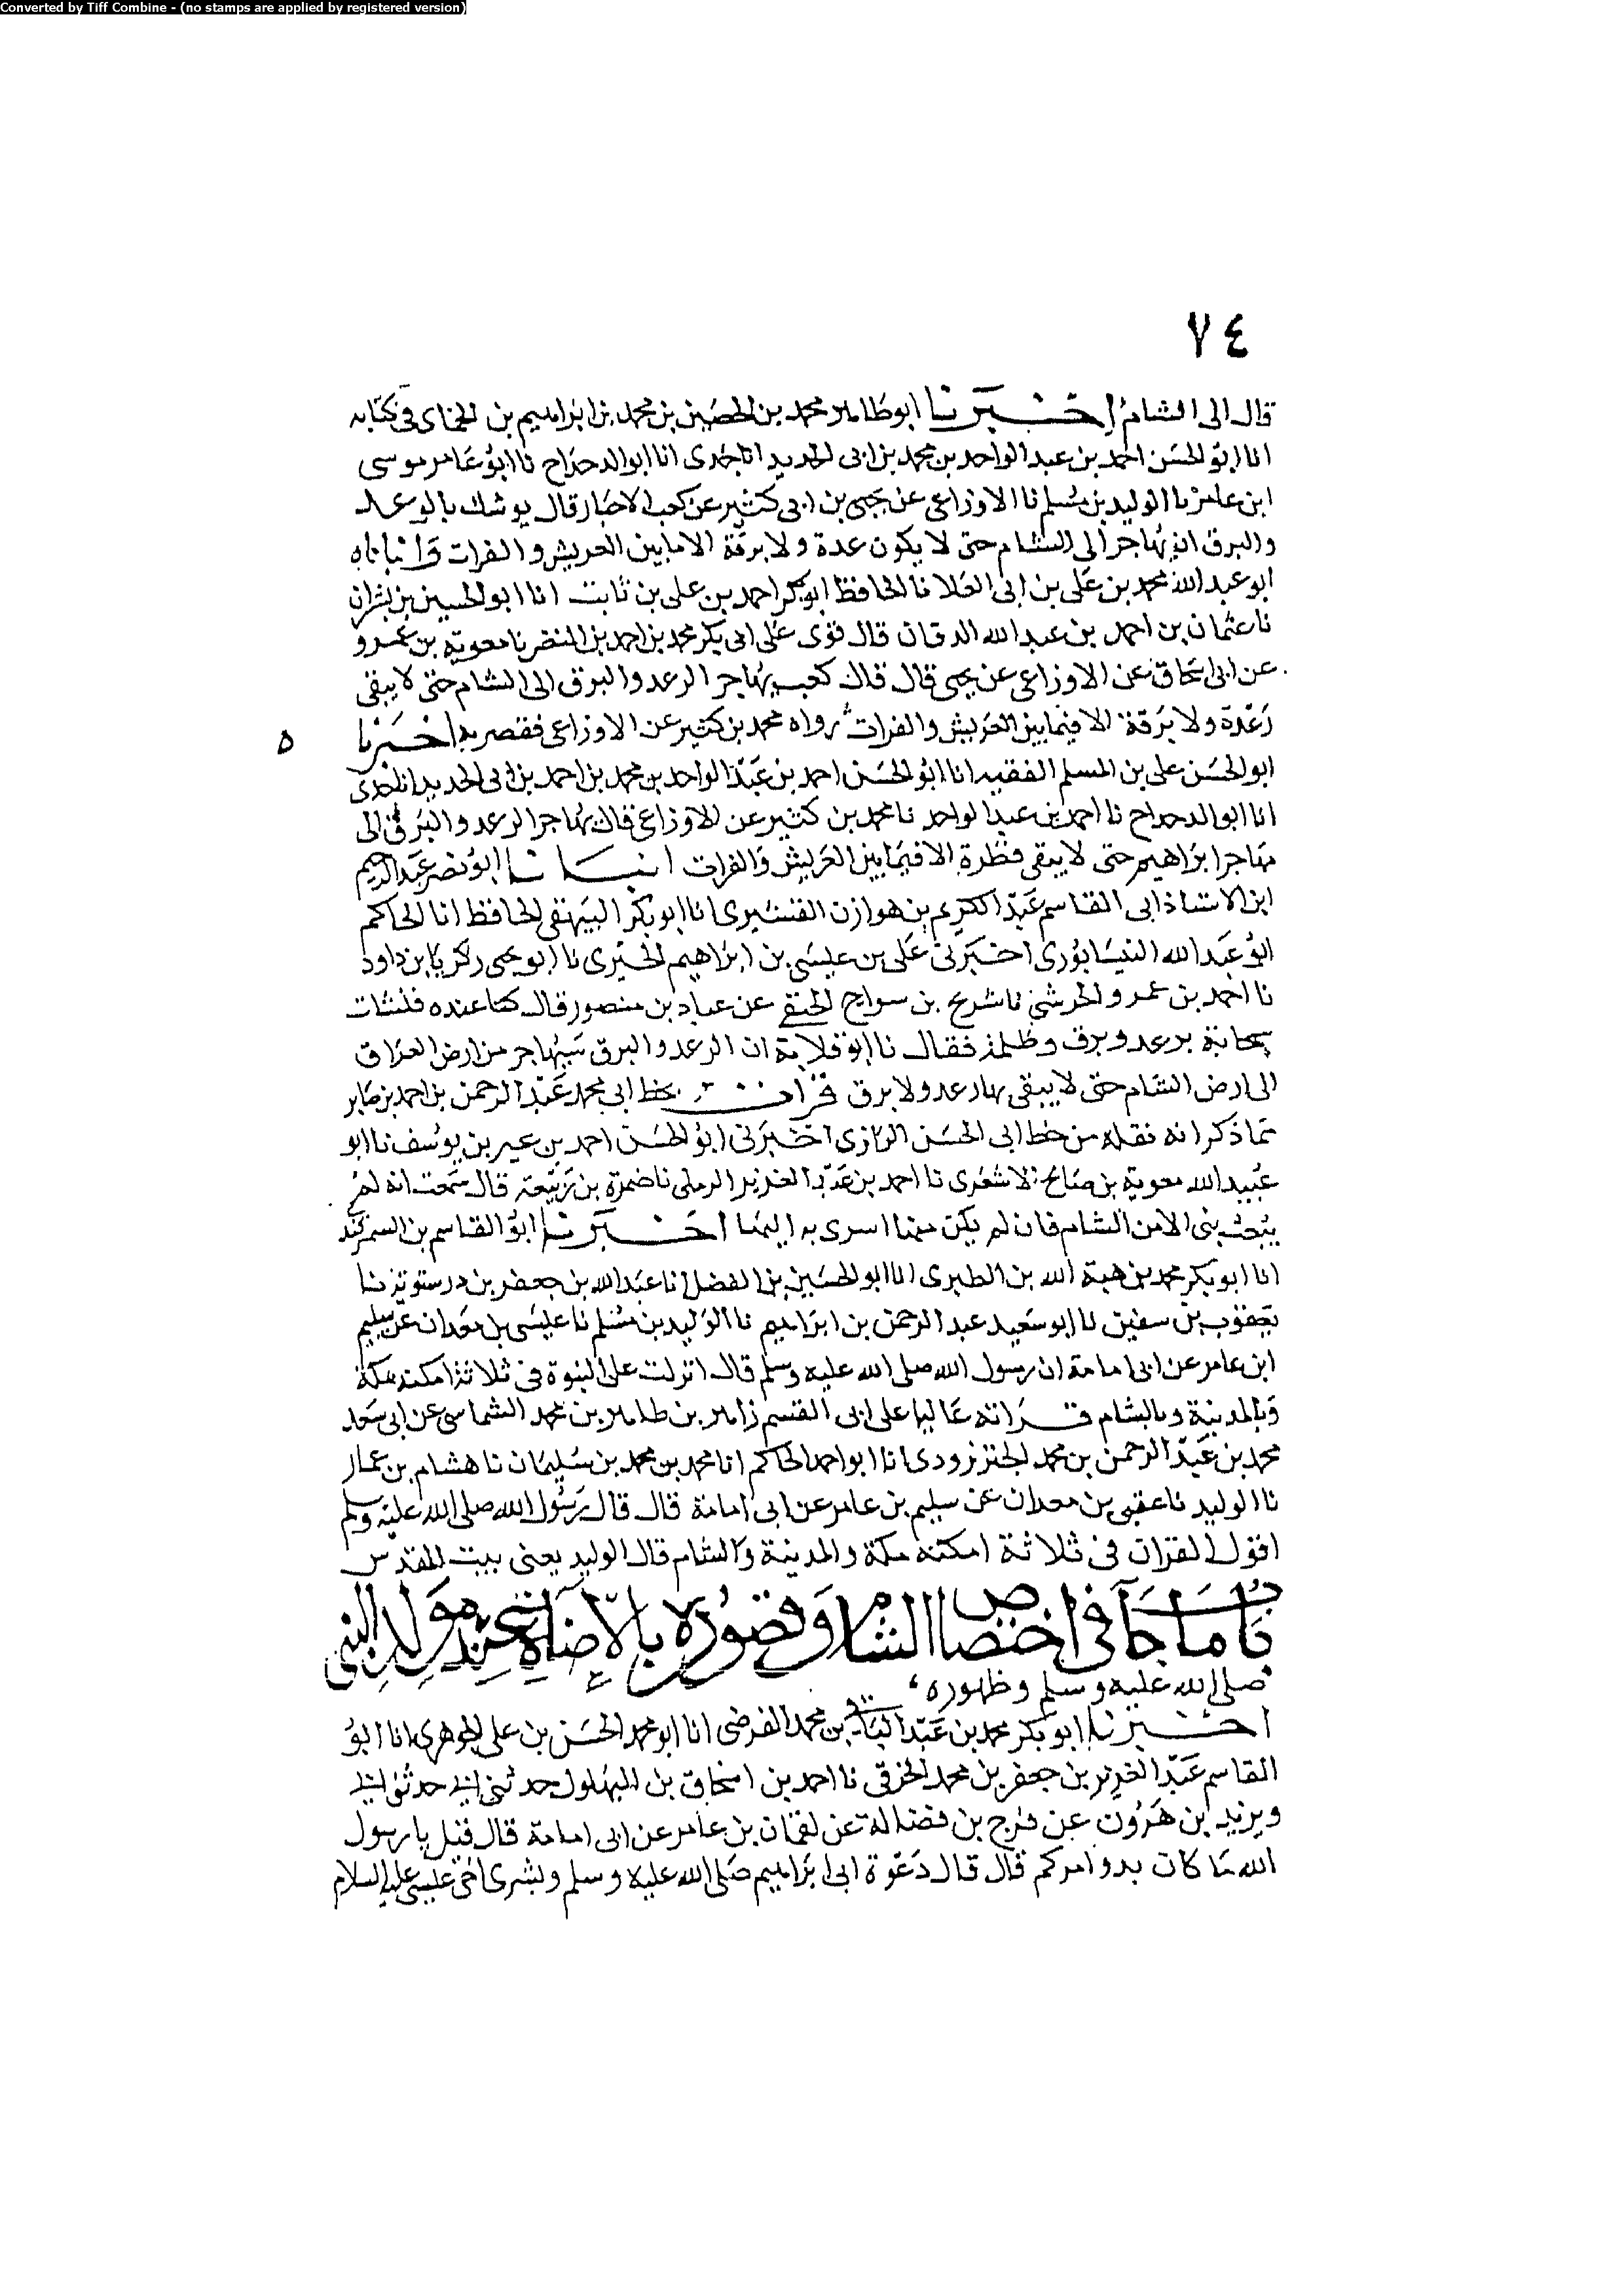 Converted by Tiff Combine - (no stamps are applied by registered version)
٧٤
قال الى الشام اخبرنا ابو طاهر محمد بن الحصين بن محمد بن ابراهيم بن الحناى فى كتابه
انا ابو الحسن احمد بن عبد الواحد بن محمد بن ابى الحديد انا جدى انا ابو الدحداح نا ابو عامر موسى
ابن عامر نا الوليد بن مسلم نا الاوزاعى عن يحيى بن ابى كثير عن كعب الاحبار قال يوشك بالرعد
والبرق ان يهاجر الى الشام حتى لا يكون عدة ولا برقة الا ما بين العريش والفرات وانباناه
ابو عبد الله محمد بن على بن ابى العلا نا الحافظ ابو بكر احمد بن على بن ثابت انا ابو الحسين بن بشران
نا عثمان بن احمد بن عبد الله الدقاق قال قرى على ابى بكر محمد بن احمد بن النضر نا معوية بن عمرو
عن ابى اسحاق عن الاوزاعى عن يحيى قال قال كعب يهاجر الرعد والبرق الى الشام حتى لا يبقى
رعدة ولا برقة الا فيما بين العريش والفرات رواه محمد بن كثير عن الاوزاعى فقصر به اخبرنا
٥
ابو الحسن على بن المسلم الفقيه انا ابو الحسن احمد بن عبد الواحد بن محمد بن احمد بن ابى الحديد انا جدى
انا ابو الدحداح نا احمد بن عبد الواحد نا محمد بن كثير عن الاوزاعى قال يهاجر الرعد والبرق الى
مهاجر ابراهيم حتى لا يبقى قطرة الا فيما بين العريش والفرات انبانا ابو نصر عبد الرحيم
ابن الاستاذ ابى القاسم عبد الكريم بن هوازن القشيرى انا ابو بكر البيهقى الحافظ انا الحاكم
ابو عبد الله النيسابورى اخبرنى على بن عيسى بن ابراهيم الحيرى نا ابو يحيى زكريا بن داود
نا احمد بن عمرو الحرشى نا شريح بن سواح عن عباد بن منصور قال كنا عنده فنشات
سحابة برعد وبرق وظلمة فقال نا ابو قلابة ان الرعد والبرق سيهاجر من ارض العراق
الى ارض الشام حتى لا يبقى بها رعد ولا برق قرات بخط ابى محمد عبد الرحمن بن احمد بن صابر
مما ذكر انه نقله من خط ابى الحسن الرازى اخبرنى ابو الحسن احمد بن عمير بن يوسف نا ابو
عبيد الله معوية بن صالح الاشعرى نا احمد بن عبد العزيز الرملى نا ضمرة بن ربيعة قال سمعت انه لم
يبعث نبى الا من الشام فان لم يكن منها اسرى به اليها اخبرنا ابو القاسم بن السمرقندى
انا ابو بكر محمد بن هبة الله بن الطبرى انا ابو الحسين بن الفضل انا عبد الله بن جعفر بن درستويه نا
يعقوب بن سفين نا ابو سعيد عبد الرحمن بن ابراهيم نا الوليد بن مسلم نا عيسى بن معدان عن سليم
ابن عامر عن ابى امامة ان رسول الله صلى الله عليه وسلم قال انزلت على النبوة فى ثلاثة امكنة مكة
وبالمدينة وبالشام قراته عاليا على ابى القسم زاهر بن طاهر بن محمد الشماسى عن ابى سعد
محمد بن عبد الرحمن بن محمد الجنزرودى انا ابو احمد الحاكم انا محمد بن محمد بن سليمان نا هشام بن عمار
نا الوليد نا عفير بن معدان عن سليم بن عامر عن ابى امامة قال قال رسول الله صلى الله عليه وسلم
القران فى ثلاثة امكنة مكة والمدينة والشام قال الوليد يعنى بيت المقدس
باب ما جاء فى اختصاص الشام وقصوره بالاضاة عند مولد النبى
صلى الله عليه وسلم وظهوره
اخبرنا ابو بكر محمد بن عبد الباقى بن محمد الفرضى انا ابو محمد الحسن بن على الجوهرى انا ابو
القاسم عبد العزيز بن جعفر بن محمد الخرقى نا احمد بن اسحاق بن البهلول حدثنى ابى حدثنى ابى
ويزيد بن هرون عن فرج بن فضالة عن لقمان بن عامر عن ابى امامة قال قيل يا رسول
الله ما كان بدو امركم قال قال دعوة ابى ابراهيم صلى الله عليه وسلم وبشرى اخى عيسى عليه السلام